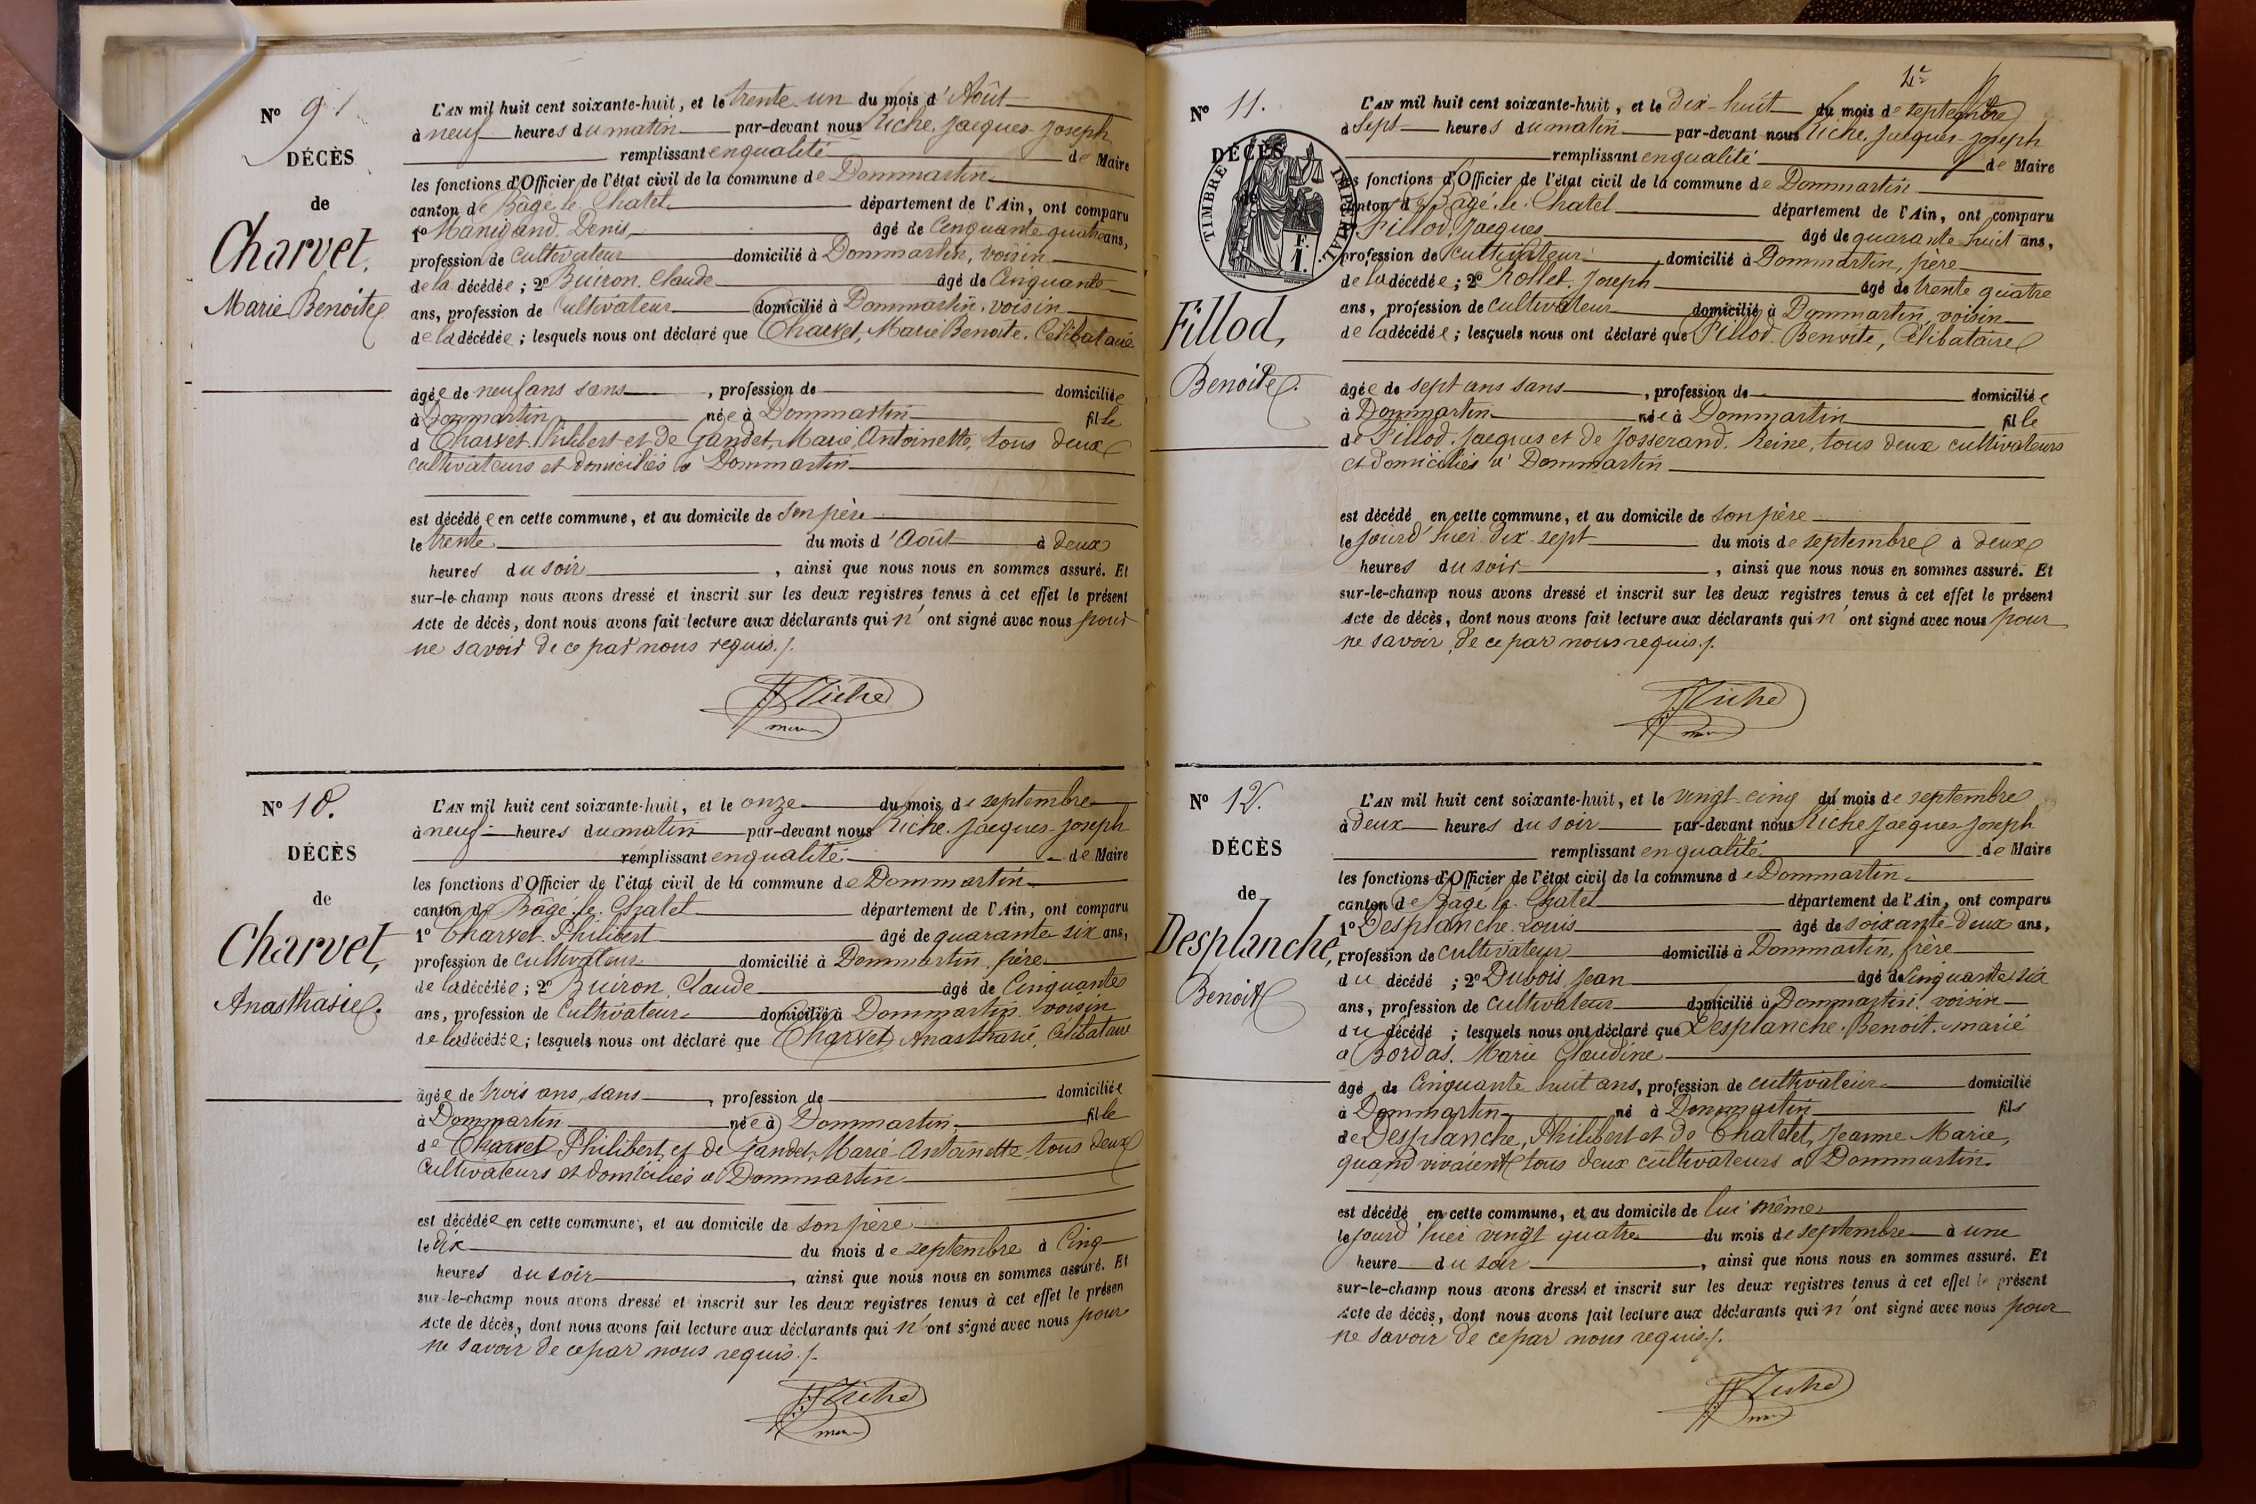 Nº 9.
DÉCÈS
de
Charvet,
Marie Benoite
L'AN mil huit cent soixante-huit, et le trente un du mois d'Août
à neuf heures du matin par-devant nous Riche, Jacques-Joseph
remplissant en qualité de Maire
les fonctions d'Officier de l'état civil de la commune de Dommartin
canton de Bâgé-le-Chatel département de l'Ain, ont comparu
1º Manigand, Denis, âgé de Cinquante quatre ans,
profession de cultivateur domicilié à Dommartin, voisin
de la décédée ; 2º Buiron, Claude âgé de Cinquante
ans, profession de Cultivateur domicilié à Dommartin, voisin
de la décédée ; lesquels nous ont déclaré que Charvet, Marie Benoite, Célibataire
âgée de neuf ans sans , profession de domiciliée
à Dommartin née à Dommartin fille
d Charvet, Philibert et de Gandet, Marie Antoinette, tous deux
cultivateurs et domiciliés à Dommartin
est décédée en cette commune, et au domicile de son père
le trente du mois d'Août à deux
heures du soir , ainsi que nous nous en sommes assuré. Et
sur-le-champ nous avons dressé et inscrit sur les deux registres tenus à cet effet le présent
Acte de décès, dont nous avons fait lecture aux déclarants qui n'ont signé avec nous pour
ne savoir de ce par nous requis ./.
JJ Riche
maire
Nº 10.
DÉCÈS
de
Charvet,
Anasthasie.
L'AN mil huit cent soixante-huit, et le onze du mois de septembre
à neuf heures du matin par-devant nous Riche, Jacques-Joseph
remplissant en qualité de Maire
les fonctions d'Officier de l'état civil de la commune de Dommartin
canton de Bâgé-le-Chatel département de l'Ain, ont comparu
1º Charvet, Philibert âgé de quarante six ans,
profession de cultivateur domicilié à Dommartin, père
de la décédée ; 2º Buiron, Claude âgé de Cinquante
ans, profession de Cultivateur domicilié à Dommartin, voisin
de la décédée ; lesquels nous ont déclaré que Charvet, Anasthasie, Célibataire
âgée de trois ans, sans , profession de domiciliée
à Dommartin née à Dommartin, fille
de Charvet, Philibert, et de Gandet, Marie-Antoinette tous deux
cultivateurs et domiciliés à Dommartin
est décédée en cette commune, et au domicile de son père
le dix du mois de septembre à Cinq
heures du soir , ainsi que nous nous en sommes assuré. Et
sur-le-champ nous avons dressé et inscrit sur les deux registres tenus à cet effet le présen
Acte de décès, dont nous avons fait lecture aux déclarants qui n'ont signé avec nous pour
ne savoir de ce par nous requis ./.
JJ Riche
maire
Nº 11.
DÉCÈS
de
TIMBRE IMPERIAL
F.
1.
Fillod,
Benoite.
L'AN mil huit cent soixante-huit, et le Dix-huit du mois de septembre
à sept heures du matin par-devant nous Riche, Jacques-Joseph
remplissant en qualité de Maire
les fonctions d'Officier de l'état civil de la commune de Dommartin
canton de Bâgé-le-Chatel département de l'Ain, ont comparu
Fillod, Jacques âgé de quarante huit ans,
profession de cultivateur domicilié à Dommartin, père
de la décédée ; 2º Rollet, Joseph âgé de trente quatre
ans, profession de cultivateur domicilié à Dommartin, voisin
de la décédée ; lesquels nous ont déclaré que Fillod, Benoite, Célibataire
âgée de sept ans sans , profession de domiciliée
à Dommartin née à Dommartin fille
de Fillod, Jacques et de Josserand, Reine, tous deux cultivateurs
et domiciliés à Dommartin
est décédé en cette commune, et au domicile de son père
le jourd'hier dix-sept du mois de septembre à deux
heures du soir , ainsi que nous nous en sommes assuré. Et
sur-le-champ nous avons dressé et inscrit sur les deux registres tenus à cet effet le présent
Acte de décès, dont nous avons fait lecture aux déclarants qui n'ont signé avec nous pour
ne savoir de ce par nous requis ./.
JJ Riche
maire
Nº 12.
DÉCÈS
de
Desplanche,
Benoit
L'AN mil huit cent soixante-huit, et le vingt-cinq du mois de septembre
à deux heures du soir par-devant nous Riche Jacques-Joseph
remplissant en qualité de Maire
les fonctions d'Officier de l'état civil de la commune de Dommartin
canton de Bâgé-le-Chatel département de l'Ain, ont comparu
1º Desplanche, Louis âgé de soixante-deux ans,
profession de cultivateur domicilié à Dommartin, frère
du décédé ; 2º Dubois, Jean âgé de Cinquante six
ans, profession de Cultivateur domicilié à Dommartin, voisin
du décédé ; lesquels nous ont déclaré que Desplanche, Benoit, marié
à Bordas, Marie Claudine
âgé de Cinquante huit ans, profession de cultivateur domicilié
à Dommartin né à Dommartin fils
de Desplanche, Philibert et de Chatelet, Jeanne Marie,
quand vivaient tous deux cultivateurs à Dommartin.
est décédé en cette commune, et au domicile de lui même
le jourd'hier vingt quatre du mois de septembre à une
heure du soir , ainsi que nous nous en sommes assuré. Et
sur-le-champ nous avons dressé et inscrit sur les deux registres tenus à cet effet le présent
Acte de décès, dont nous avons fait lecture aux déclarants qui n'ont signé avec nous pour
ne savoir de ce par nous requis ./.
JJ Riche
maire